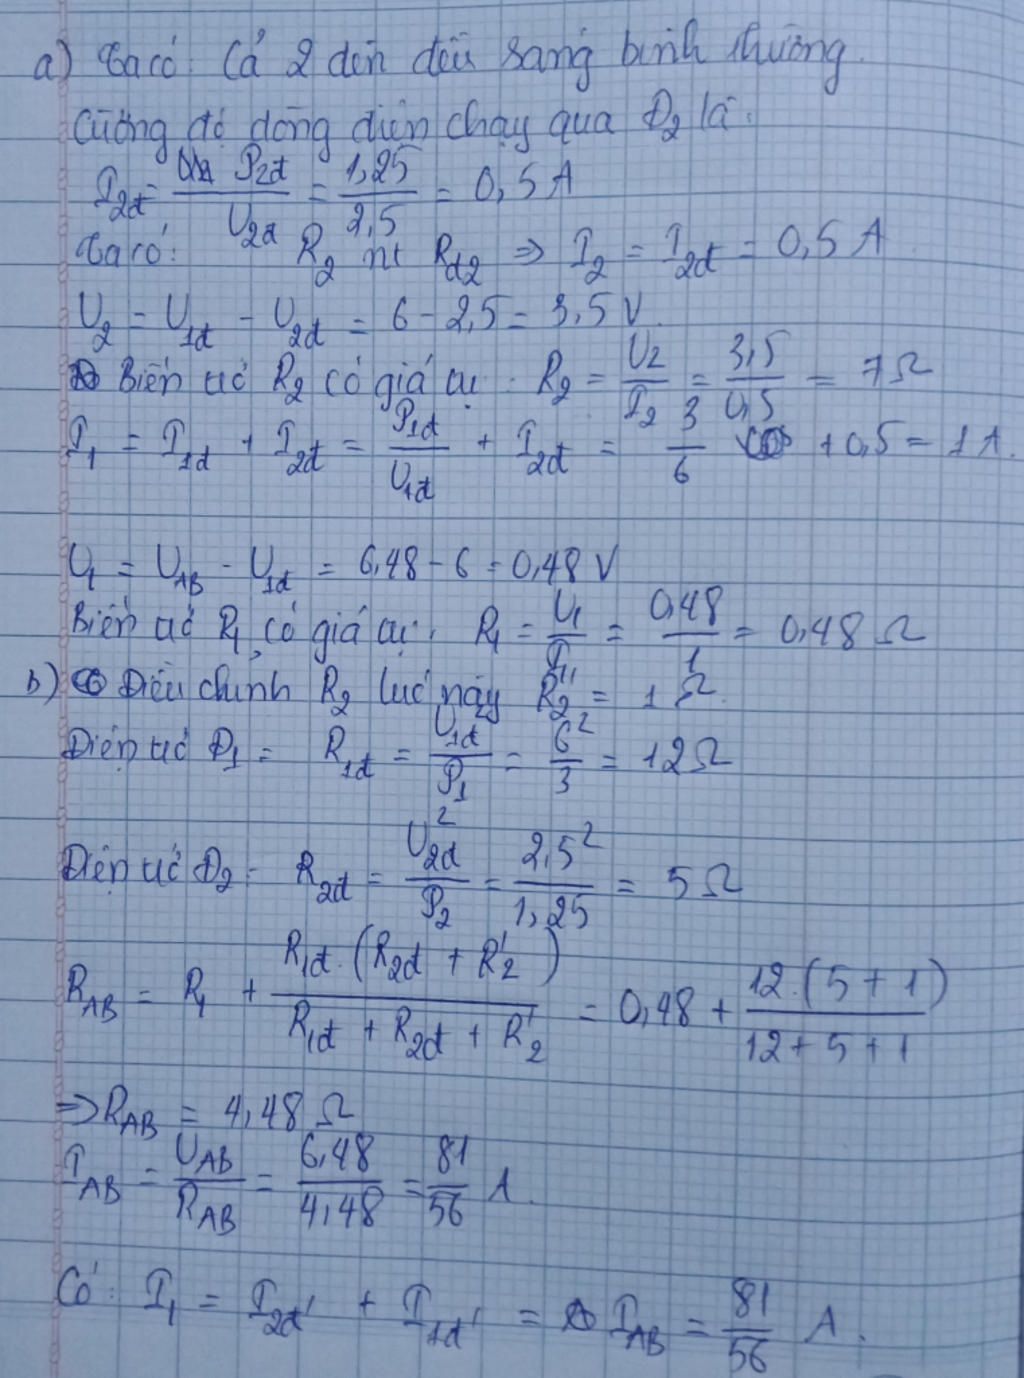 a) Ta có: Cả 2 đèn đều sáng bình thường.
Cường độ dòng điện chạy qua Đ2 là:
I2đ = P2đ / U2đ = 1,25 / 2,5 = 0,5 A
Ta có: R2 nt Rđ2 => I2 = I2đ = 0,5 A
U2 = U1đ - U2đ = 6 - 2,5 = 3,5 V.
Biến trở R2 có giá trị: R2 = U2 / I2 = 3,5 / 0,5 = 7 Ω
I1 = I1đ + I2đ = P1đ / U1đ + I2đ = 3 / 6 + 0,5 = 1 A.
U1 = UAB - U1đ = 6,48 - 6 = 0,48 V
Biến trở R1 có giá trị: R1 = U1 / I1 = 0,48 / 1 = 0,48 Ω
b) Điều chỉnh R2 lúc này R2' = 1 Ω.
Điện trở Đ1 = R1đ = U1đ / P1 = 6² / 3 = 12 Ω
Điện trở Đ2 = R2đ = U2đ² / P2 = 2,5² / 1,25 = 5 Ω
RAB = R1 + R1đ.(R2đ + R2') / R1đ + R2đ + R2' = 0,48 + 12.(5 + 1) / 12 + 5 + 1
=> RAB = 4,48 Ω
IAB = UAB / RAB = 6,48 / 4,48 = 81 / 56 A.
Có: I1 = I2đ' + I1đ' = IAB = 81 / 56 A.